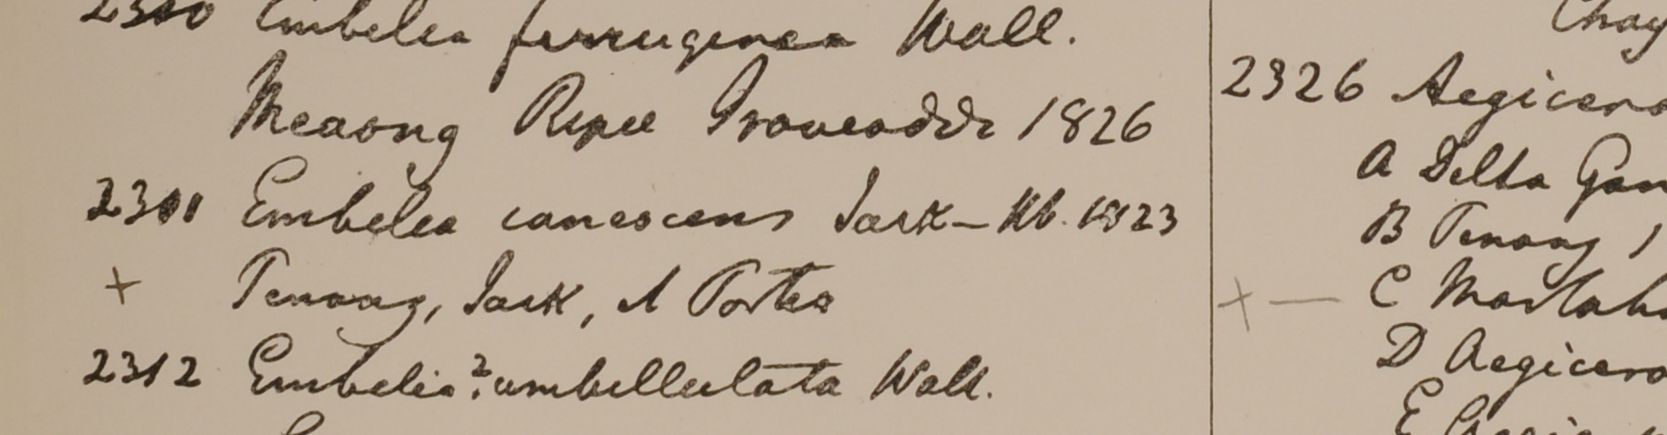 2310 Embelea ferruginea Wall.
Meaong Ripee Irouvaddi 1826
2311 Embelea canescens Jack – Hb. 1823
+ Penang, Jack, & Porter
2312 Embelia? umbellulata Wall.
Chay
2326 Aegicero
A Delta Gan
B Penang 1
+ — C Martab
D Aegicero
E